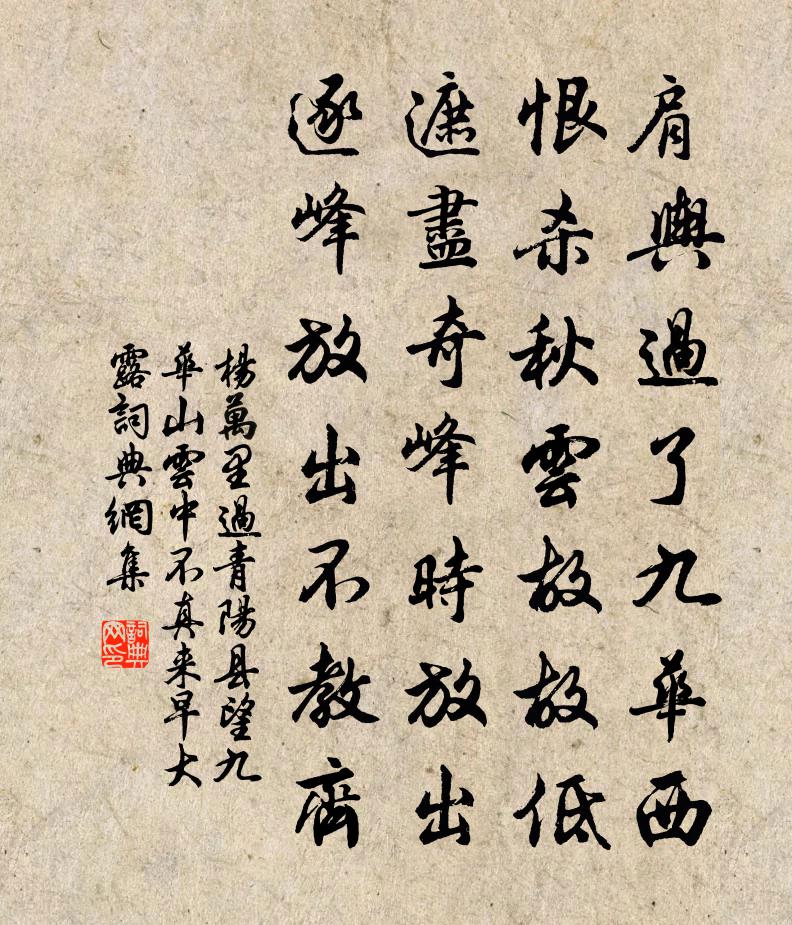 肩輿過了九華西
恨杀秋雲故故低
遮盡奇峰時放出
逐峰放出不教齊
楊萬里過青陽县望九
華山雲中不真来早大
露詞典網集
詞典网印